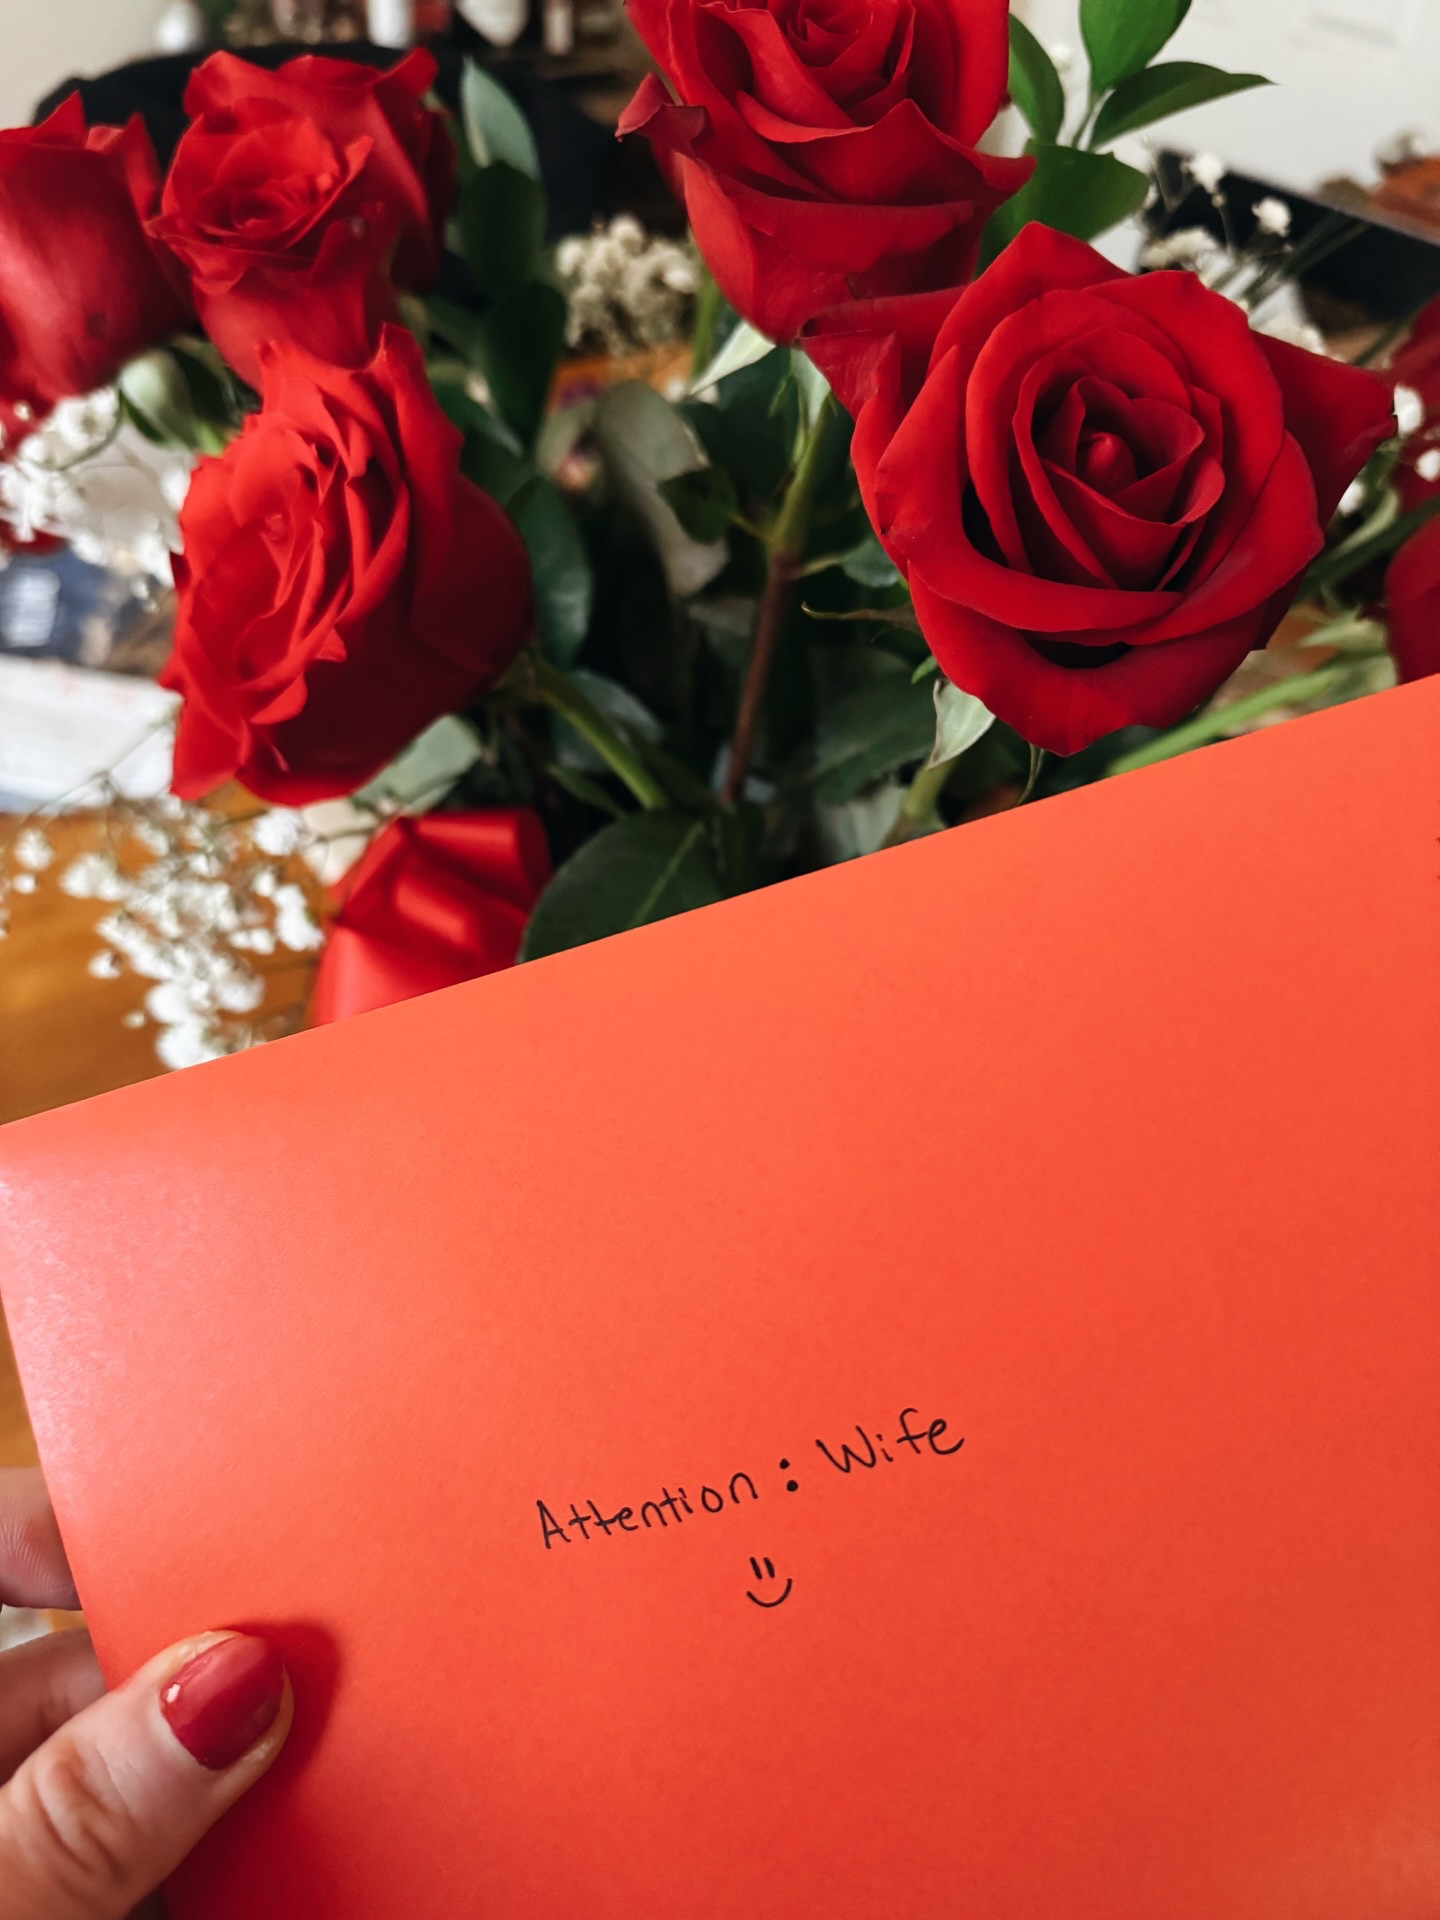 Attention : Wife